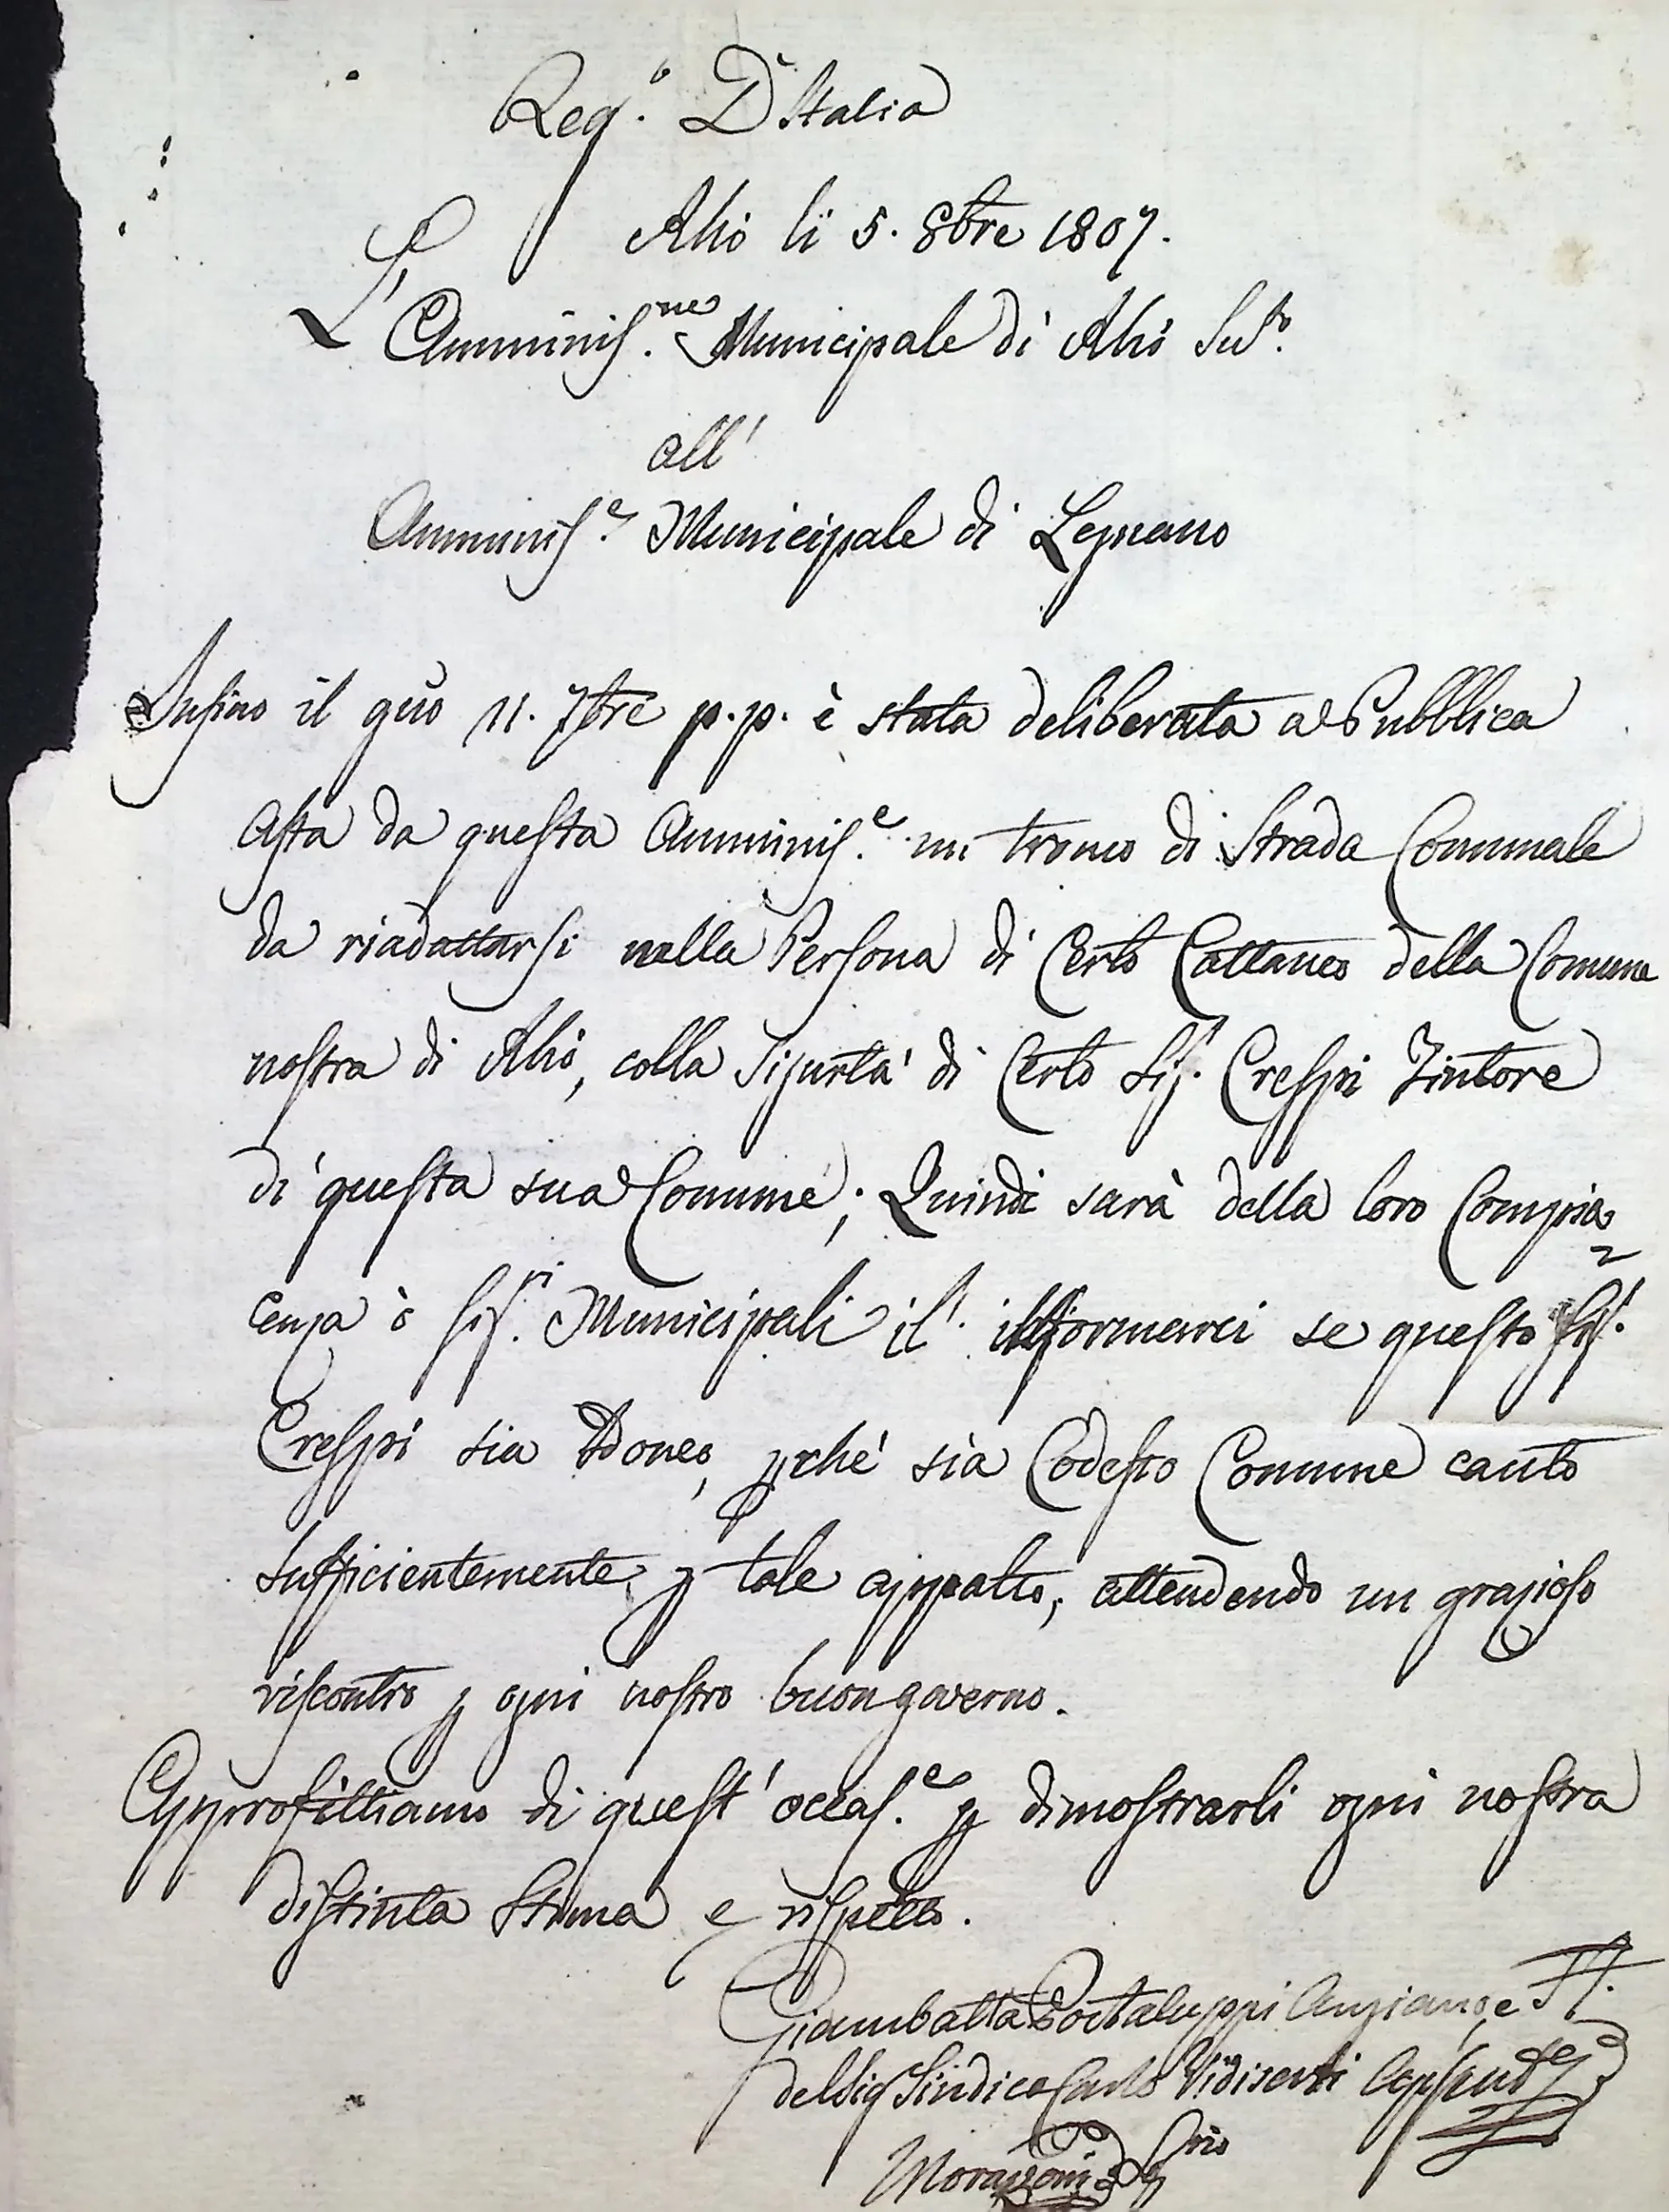 Reg.º D'Italia
Rhò li 5. 8bre 1807.
L'Amminis.ne Municipale di Rhò Sud.º
all'
Amminis.e Municipale di Legnano
Insino il giio 11. 7bre p.p. è stata deliberata a Pubblica
Asta da questa Amminis.e un tronco di Strada Comunale
da riadattarsi nella Persona di Certo Cattaneo della Comune
nostra di Rhò, colla Sigurtà di Certo Sig.r Crespi Tintore
di questa sua Comune; Quindi sarà della loro Compia=
cenza ò Sig.ri Municipali il' informarci se questo Sig.r
Crespi sia Idoneo, p̲ché sia Codesto Comune cauto
sufficientemente p̲ tale appalto, attendendo un grazioso
riscontro p̲ ogni nostro buon governo.
Approfittiamo di quest'occas.e p̲ dimostrarli ogni nostra
distinta Stima e rispetto.
Giambatta Portaluppi Anziano, e FF.
del Sig Sindico Carlo Vidiserti
Morazzoni Srio